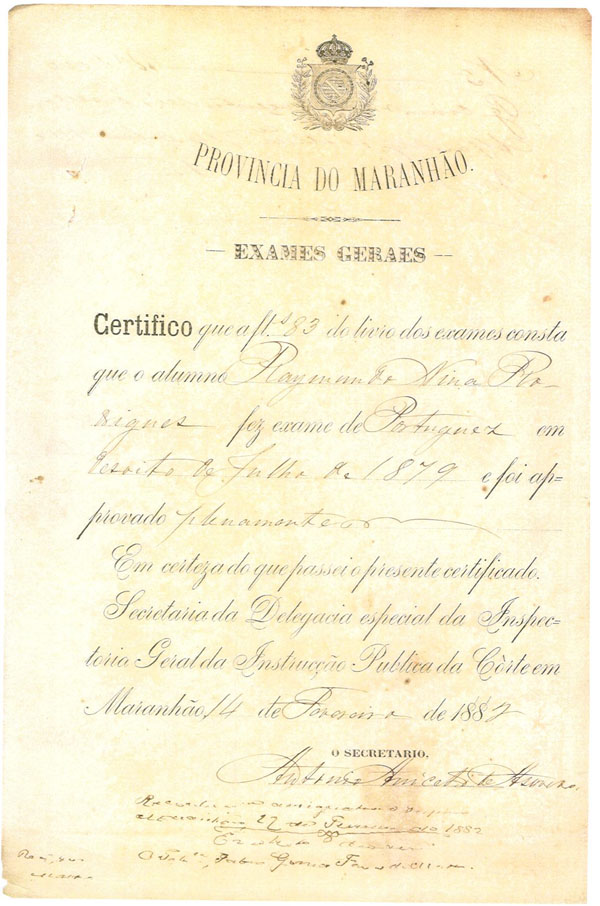 PROVINCIA DO MARANHÃO.
— EXAMES GERAES —
Certifico que a fl.s 83 do livro dos exames consta
que o alumno Raymundo Nina Ro-
drigues fez exame de Portuguez em
desoito de Julho de 1879 e foi ap-
provado plenamente
Em certeza do que passei o presente certificado.
Secretaria da Delegacia especial da Inspec-
toria Geral da Instrucção Publica da Côrte em
Maranhão, 14 de Fevereiro de 1882
O SECRETARIO,
Antonio
27 de Fevereiro de 1882